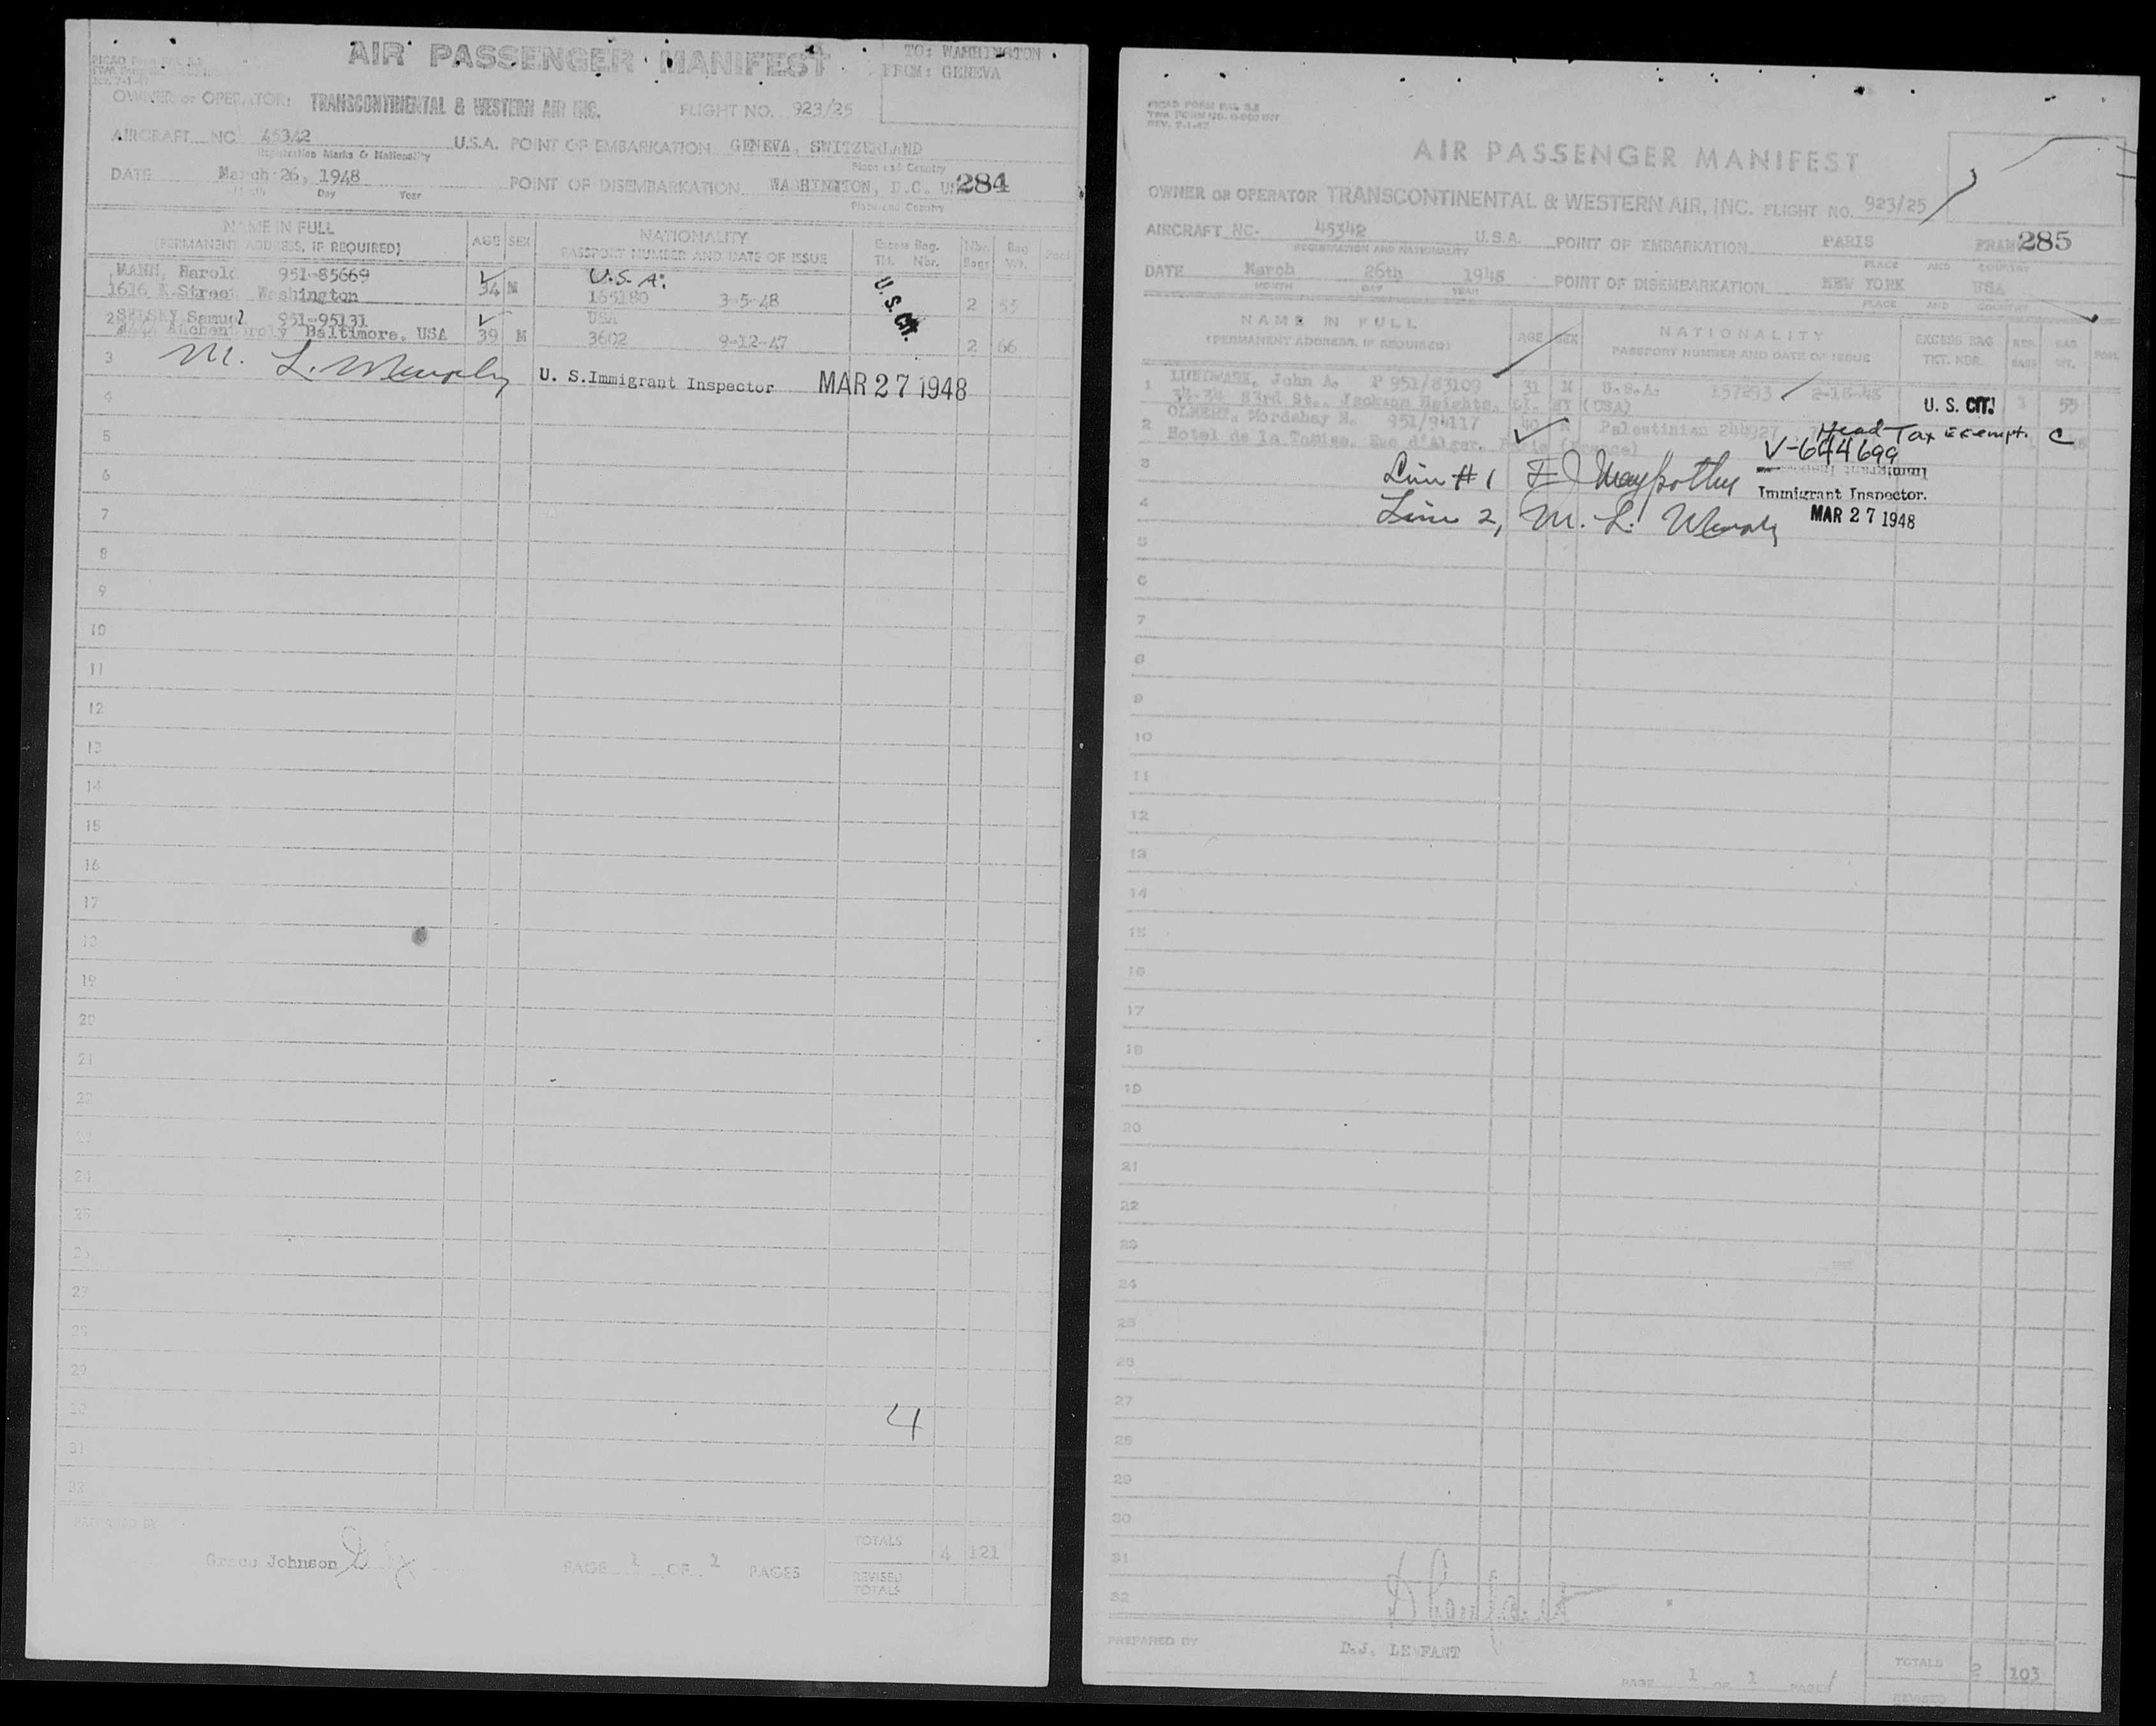 AIR PASSENGER MANIFEST
TO: WASHINGTON
FROM: GENEVA
OWNER or OPERATOR: TRANSCONTINENTAL & WESTERN AIR INC. FLIGHT NO. 923/25
AIRCRAFT NC 45342 U.S.A. POINT OF EMBARKATION GENEVA, SWITZERLAND
Registration Marks & Nationality Place and Country
DATE March 26, 1948 POINT OF DISEMBARKATION WASHINGTON, D.C. US 284
Month Day Year Place and Country
NAME IN FULL
(PERMANENT ADDRESS, IF REQUIRED) AGE SEX NATIONALITY
PASSPORT NUMBER AND DATE OF ISSUE Excess Bag. Tkt. Nbr. Nbr. Bags Bag Wt. Pool
MANN, Harold 951-85669 U.S.A.
1616 K.Street Washington 34 M 165180 3-5-48 U.S. CIT. 2 55
2 SELSKY Samuel 951-95131 USA
Baltimore, USA 39 M 3602 9-12-47 2 66
3 M. L. Murphy U. S. Immigrant Inspector MAR 27 1948
4
5
6
7
8
9
10
11
12
13
14
15
16
17
18
19
20
21
22
23
24
25
26
27
28
29
30 4
31
32
PREPARED BY
Grace Johnson PAGE 1 OF 1 PAGES
TOTALS 4 121
REVISED TOTALS
PICAO FORM PAL 2.2
TWA FORM NO. O-000 INT
REV. 7-1-47
AIR PASSENGER MANIFEST
OWNER OR OPERATOR TRANSCONTINENTAL & WESTERN AIR, INC. FLIGHT NO. 923/25
AIRCRAFT NC- 45342 U.S.A. POINT OF EMBARKATION PARIS FRAN 285
REGISTRATION AND NATIONALITY PLACE AND COUNTRY
DATE March 26th 1948 POINT OF DISEMBARKATION NEW YORK USA
MONTH DAY YEAR PLACE AND COUNTRY
NAME IN FULL
(PERMANENT ADDRESS, IF REQUIRED) AGE SEX NATIONALITY
PASSPORT NUMBER AND DATE OF ISSUE EXCESS BAG TKT. NBR. NBR. BAGS BAG WT. POOL
1 John A. P 951/83109 31 M U.S.A. 157293 2-18-48
34-34 83rd St., Jackson Heights, LI. NY (USA) U. S. CIT. 1 55
2 OLMERT, Mordehay H. 951/94117 40 M Palestinian 244927 Head Tax Exempt. C
Hotel de la Tamise, Rue d'Alger, Paris (France) V-644699
3 Line #1 Immigrant Inspector.
4 Line 2, M. L. Murphy MAR 27 1948
5
6
7
8
9
10
11
12
13
14
15
16
17
18
19
20
21
22
23
24
25
26
27
28
29
30
31
32
PREPARED BY D.J. LENFANT
PAGE 1 OF 1 PAGES
TOTALS 2 103
REVISED